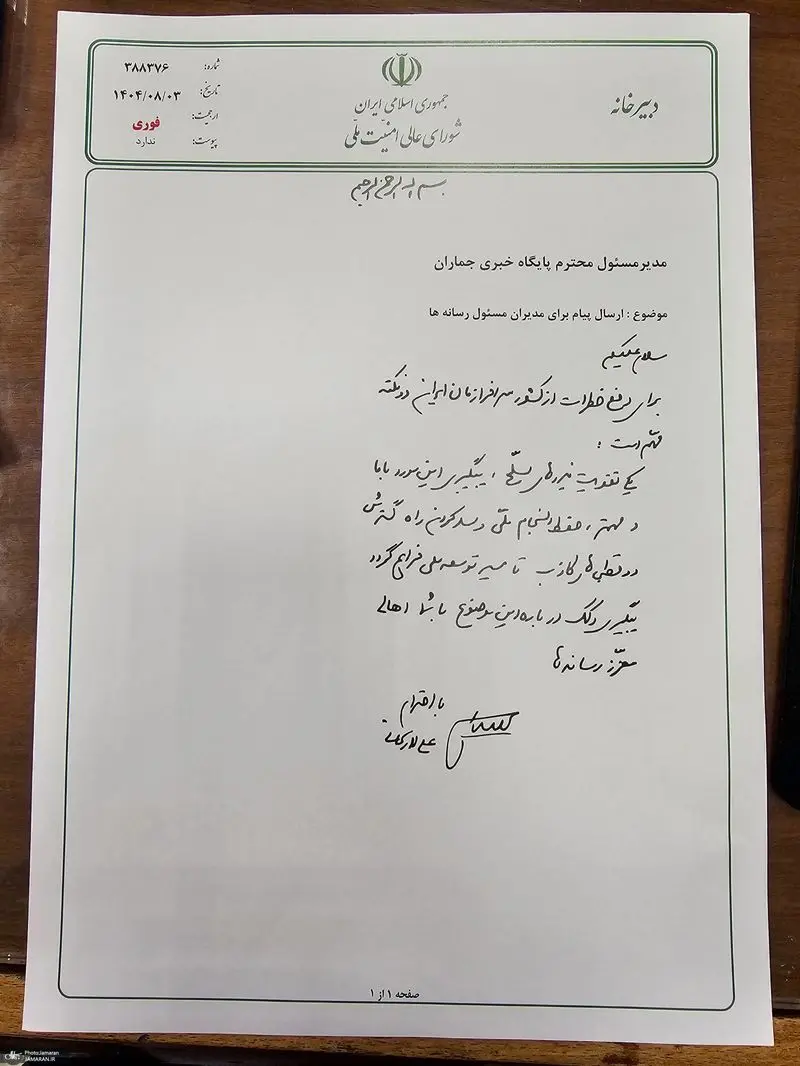 دبیرخانه
جمهوری اسلامی ایران
شورای عالی امنیت ملّی
شماره: ۳۸۸۳۷۶
تاریخ: ۱۴۰۴/۰۸/۰۳
ارجحیت: فوری
پیوست: ندارد
بسم الله الرحمن الرحیم
مدیرمسئول محترم پایگاه خبری جماران
موضوع : ارسال پیام برای مدیران مسئول رسانه ها
سلام علیکم
برای رفع خطرات از کشور سرافرازمان ایران دو نکته
مهّم است :
یکی تقویت نیروهای مسلّح ، پیگیری این مورد با ما
و مهمتر ، حفظ انسجام ملّی و سد کردن راه گسترش
دو قطبی‌های کاذب تا مسیر توسعه ملی فراهم گردد
پیگیری و کمک در باره این موضوع با شما اهالی
معزّز رسانه‌ها
با احترام
علی لاریجانی
صفحه ۱ از ۱
Photo:Jamaran
JAMARAN.IR